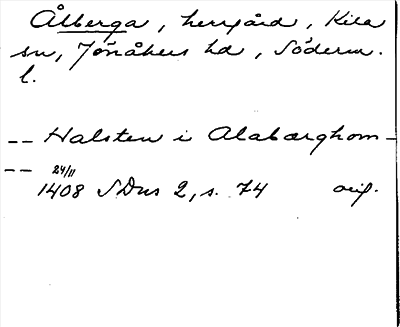 Ålberga, herrgård, Kila
sn, Jönåkers hd, Söderm.
l.
-- Halsten i Alabærghom -
-- 24/11
1408 SDns 2, s. 74 orig.